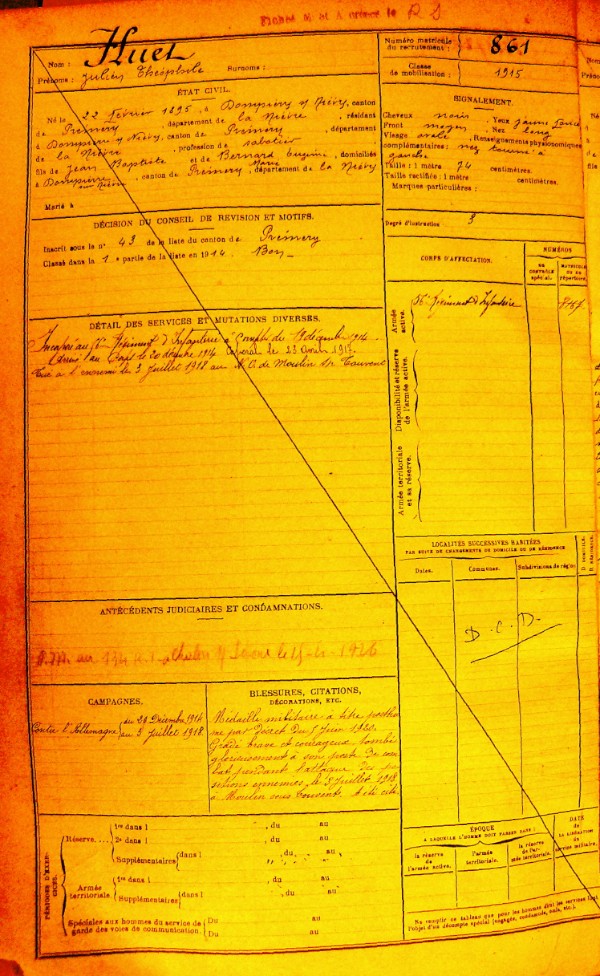 Nom : Huet
Prénoms : Julien Théophile Surnoms :
Numéro matricule
du recrutement :
861
Classe
de mobilisation :
1915
ÉTAT CIVIL.
Né le 22 février 1895, à Dompierre s/ Nièvre, canton
de Prémery, département de la Nièvre, résidant
à Dompierre s/ Nièvre, canton de Prémery, département
de la Nièvre, profession de sabotier
fils de Jean Baptiste et de Bernard Eugénie Marie, domiciliés
à Dompierre sur Nièvre, canton de Prémery, département de la Nièvre
Marié à
SIGNALEMENT.
Cheveux noirs. Yeux jaune
Front moyen. Nez long
Visage ovale. Renseignements physionomiques
complémentaires : nez tourné à
gauche
Taille : 1 mètre 74 centimètres.
Taille rectifiée : 1 mètre centimètres.
Marques particulières :
Degré d'instruction : 3
DÉCISION DU CONSEIL DE REVISION ET MOTIFS.
Inscrit sous le n° 43 de la liste du canton de Prémery
Classé dans la 1e partie de la liste en 1914. Bon
CORPS D'AFFECTATION.
NUMÉROS
AU
CONTROLE
spécial.
MATRICULE
OU AU
répertoire.
Armée
active.
Régiment d'Infanterie
Disponibilité et réserve
de l'armée active.
Armée territoriale
et sa réserve.
DÉTAIL DES SERVICES ET MUTATIONS DIVERSES.
Incorporé au Régiment d'Infanterie à compter du décembre 1914.
Arrivé au Corps le 20 décembre 1914. Caporal le 23 Avril 1917.
Tué à l'ennemi le 3 Juillet 1918 au N. O. de Moulin s/s Touvent
LOCALITÉS SUCCESSIVES HABITÉES
PAR SUITE DE CHANGEMENTS DE DOMICILE OU DE RÉSIDENCE
Dates.
Communes.
Subdivisions de région
D. DOMICILE.
R. RÉSIDENCE.
D.C.D.
ANTÉCÉDENTS JUDICIAIRES ET CONDAMNATIONS.
CAMPAGNES.
Contre l'Allemagne du 20 Décembre 1914
au 3 Juillet 1918.
BLESSURES, CITATIONS,
DÉCORATIONS, ETC.
Médaille militaire à titre posthu
me par Décret du 5 Juin 1920.
Gradé brave et courageux tombé
glorieusement à son poste de com
bat pendant l'attaque des po
sitions ennemies, le 3 Juillet 1918
à Moulin sous Touvent. A été cité
PÉRIODES D'EXER-
CICES.
Réserve.... 1re dans l , du au
2e dans l , du au
Supplémentaires dans l , du au
Armée
territoriale.
1re dans l , du au
Supplémentaires dans l , du au
Spéciales aux hommes du service de
garde des voies de communication.
Du au
Du au
ÉPOQUE
A LAQUELLE L'HOMME DOIT PASSER DANS :
la réserve
de l'armée active.
l'armée
territoriale.
la réserve
de l'ar-
mée territoriale.
DATE
de
LA LIBÉRATION
du
service militaire.
Ne remplir ce tableau que pour les hommes dont les services font
l'objet d'un décompte spécial (engagés, condamnés, omis, etc.)